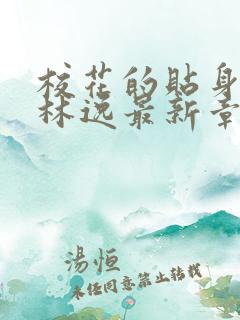 校花的貼身
林逸最新章
湯恒
未经同意禁止转载